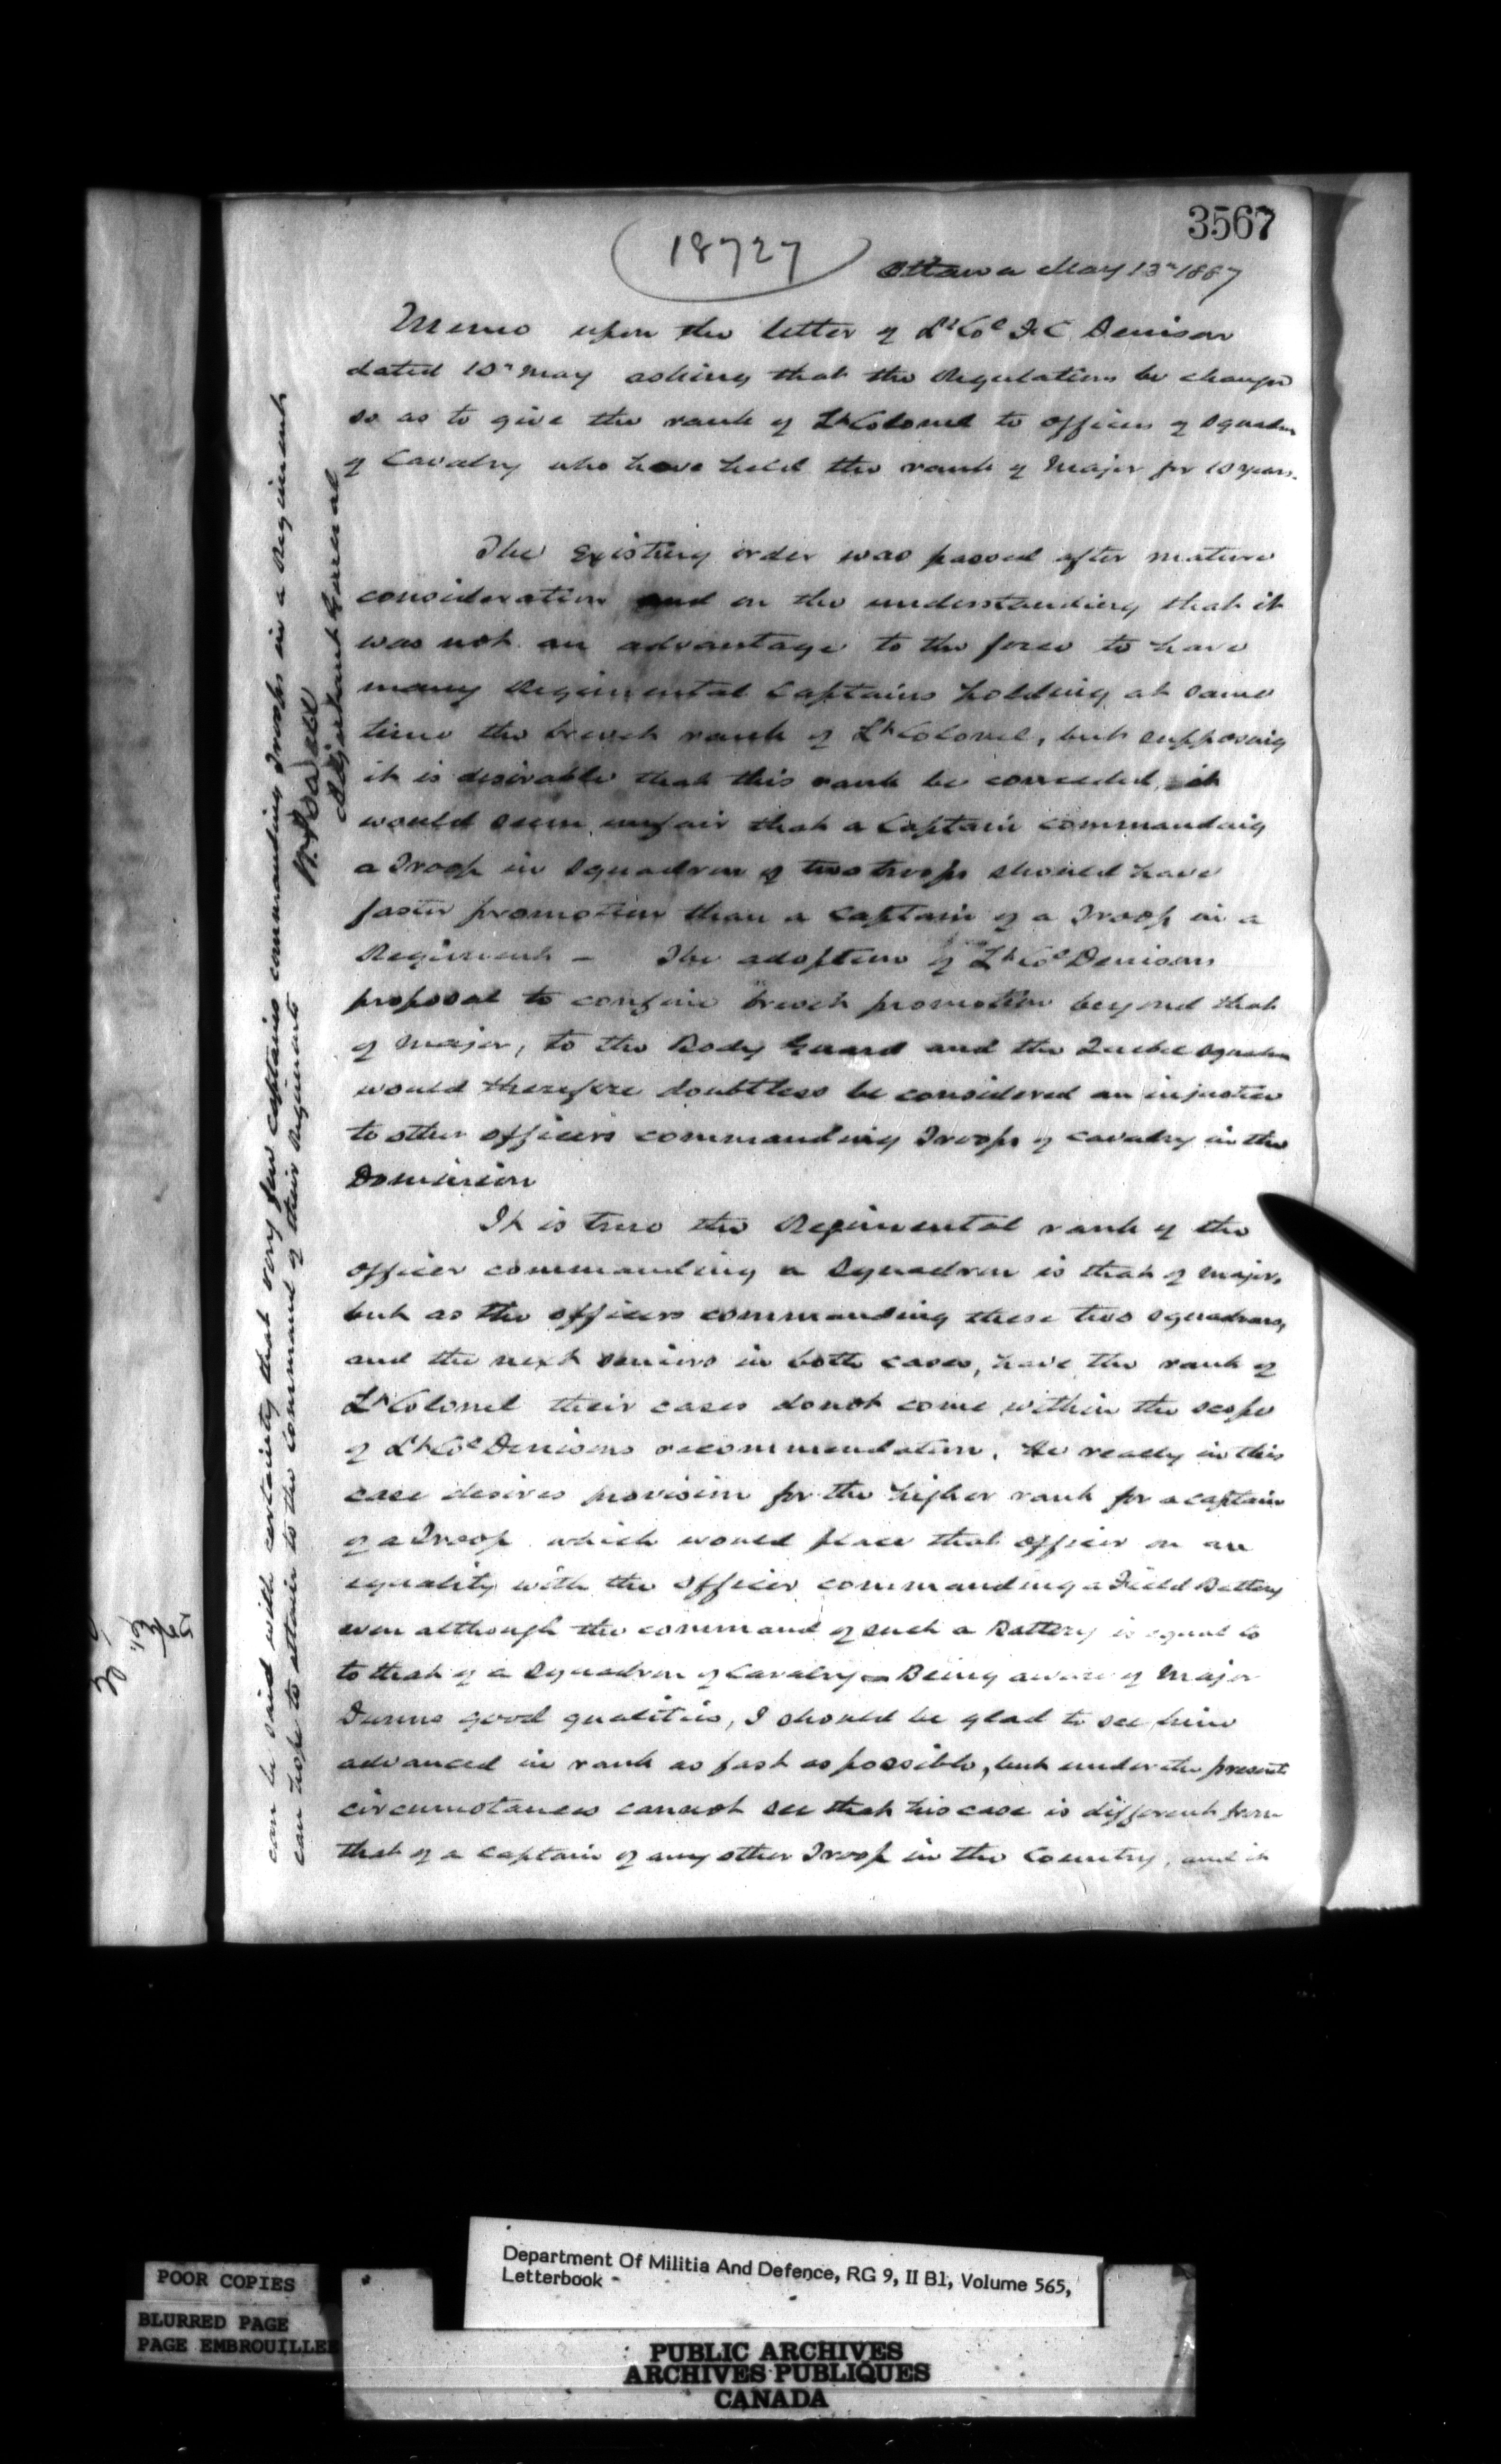 3567
18727
Ottawa May 13th 1887
Memo upon the letter of Lt Col F C Denison
dated 10th May asking that the Regulations be changed
so as to give the rank of Lt Colonel to officers of Squadron
of Cavalry who have held the rank of Major for 10 years.
The existing order was passed after mature
consideration and on the understanding that it
was not an advantage to the force to have
many Regimental Captains holding at same
time the brevet rank of Lt Colonel, but supposing
it is desirable that this rank be conceded, it
would seem unfair that a Captain commanding
a Troop in Squadron of two troops should have
faster promotion than a Captain of a Troop in a
Regiment - The adoption of Lt Col Denisons
proposal to confine brevet promotion beyond that
of Major, to the Body Guard and the Quebec Squadron
would therefore doubtless be considered an injustice
to other officers commanding Troops of Cavalry in the
Dominion
It is true the Regimental rank of the
officer commanding a Squadron is that of Major,
but as the officers commanding these two squadrons,
and the next seniors in both cases, have the rank of
Lt Colonel their cases do not come within the scope
of Lt Col Denisons recommendation. He really in this
case desires provision for the higher rank for a captain
of a Troop which would place that officer on an
equality with the officer commanding a Field Battery
even although the command of such a Battery is equal to
to that of a Squadron of Cavalry - Being aware of Major
Dunns good qualities, I should be glad to see him
advanced in rank as fast as possible, but under the present
circumstances cannot see that his case is different from
that of a captain of any other Troop in the Country, and it
can be said with certainty that very few captains commanding Troops in a Regiment
can hope to attain to the command of their Regiments
Adjutant General
POOR COPIES
BLURRED PAGE
PAGE EMBROUILLEE
Department Of Militia And Defence, RG 9, II B1, Volume 565,
Letterbook -
PUBLIC ARCHIVES
ARCHIVES PUBLIQUES
CANADA